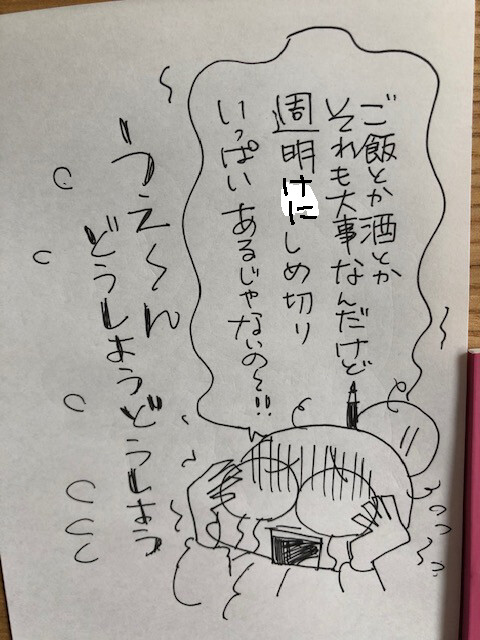 ご飯とか酒とか
それも大事なんだけど
週明けにしめ切り
いっぱいあるじゃないの〜!!
うえ〜ん
どうしようどうしよう